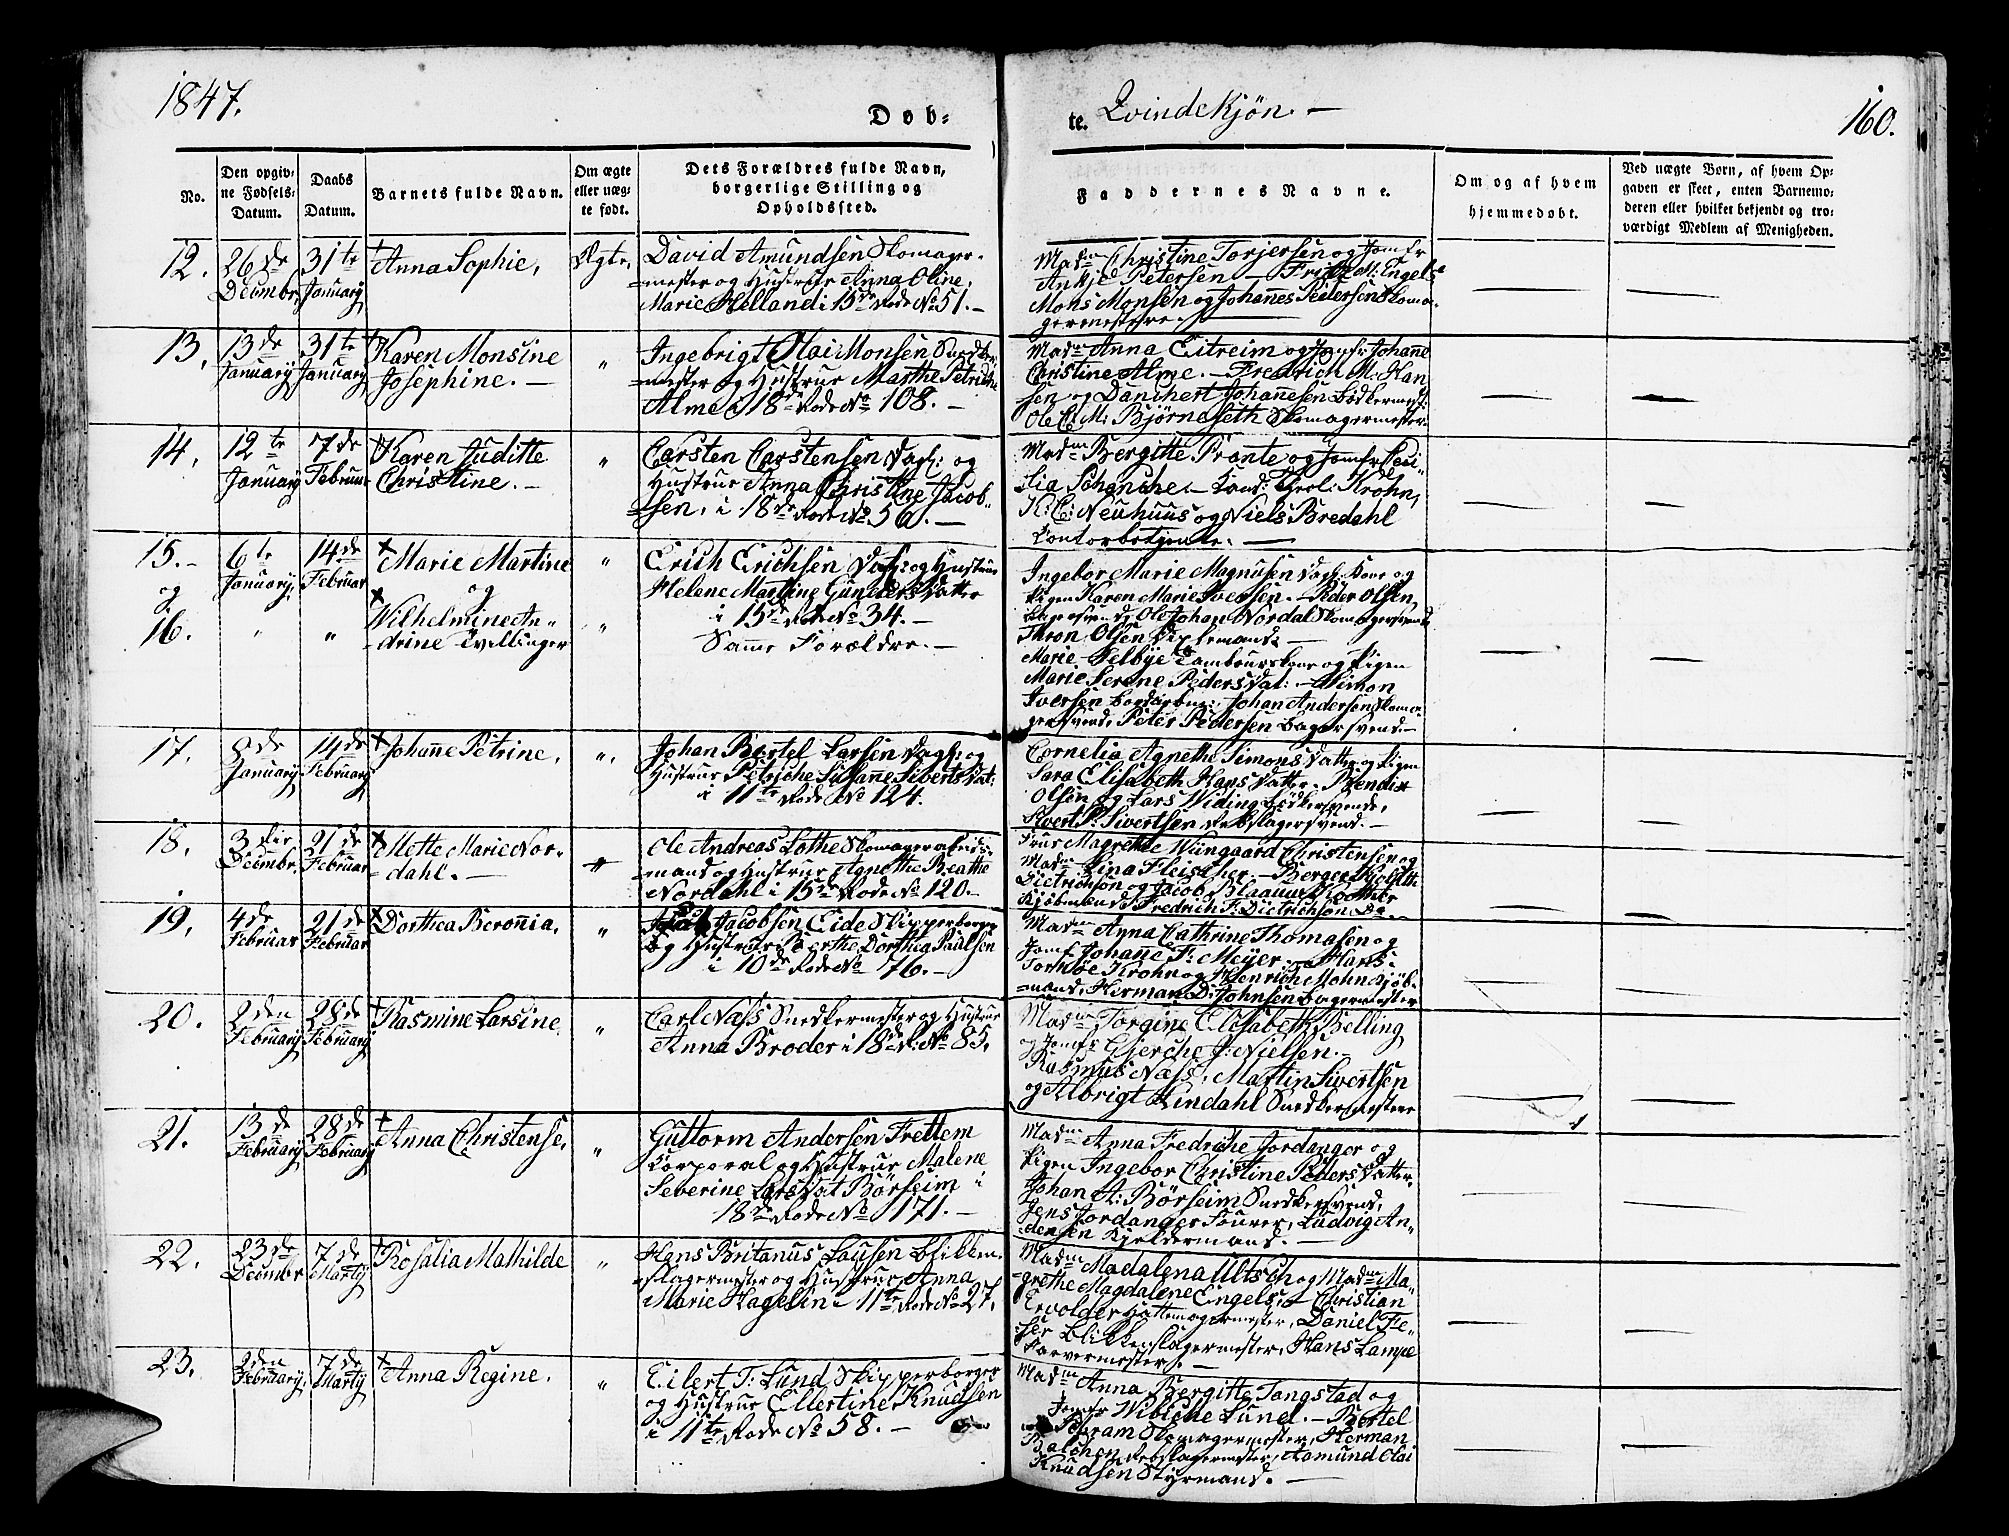 1847.
Døb-
te. Qvindekjøn. —
160.
No.
Den opgiv-
ne Fødsels-
Datum.
Daabs
Datum.
Barnets fulde Navn.
Om ægte
eller uæg-
te født.
Dets Forældres fulde Navn,
borgerlige Stilling og
Opholdssted.
Faddernes Navne.
Om og af hvem
hjemmedøbt.
Ved uægte Børn, af hvem Op-
gaven er skeet, enten Barnemo-
deren eller hvilket bekjendt og tro-
værdigt Medlem af Menigheden.
12.
26de
Decmbr.
31te
January
Anna Sophie,
Ægte,
David Amundsen Skomager-
mester og Hustrue Anna Oline
Marie Helland i 15de Rode No 51. —
Madm Christine Torjersen og Jomfr
Ankje Petersen —
Mons Monsen og Johannes Pedersen Skoma-
germestere.
13.
13de
January
31te
January
Karen Monsine
Josephine. —
"
Ingebrigt Olai Monsen Snedker
mester og Hustrue Marthe Petriche
Alme i 18de Rode No 108. —
Madm Anna Eitreim og Jomfr Johanne
Christine Alme. — Fredrich M. Han
sen og Danchert Johannesen Bødkermestr:
Ole C. M. Bjørneseth Skomagermester.
14.
12te
January
7de
Februar
Karen Juditte
Christine. —
"
Carsten Carstensen Dagl: og
Hustrue Anna Christine Jacob-
sen, i 18de Rode No 50. —
Madm Bergitte Prante og Jomfr Ceci-
lia Schanche. — Cand: Theol: Krohn,
K: C: Neuhuus og Niels Bredahl
Contorbetjente. —
15. —
og
16.
6te
January,
"
14de
Februar
"
Marie Martine
og
Vilhelmine An-
drine Tvillinger
"
"
Erich Erichsen Dagl: og Hustrue
Helene Martine Gunders Datter
i 15de Rode No 34. —
Samme Forældre. —
Ingebor Marie Magnusen Dagl: Kone og
Pigen Karen Marie Iversen. — Peder Olsen,
Ole Johan Nordal Skomagersvend
Thron Olsen
Marie Selbye Tambourskone og Pigen
Marie Serene Peders Dat: — Simon
Iversen Johan Andersen Skoma-
gersvend, Peter Pedersen Bagersvend. —
17.
8de
January
14de
February
Johanne Petrine,
"
Johan Bertel Larsen Dagl: og
Hustrue Petriche Susanne Siverts Dat:
i 11te Rode No 124.
Cornelia Agnethe Simons Datter og Pigen
Sara Elisabeth Hans Datter. — Bendix
Olsen og Lars Widing Bødkersvende,
Sivert P: Sivertsen Rebslagersvend. —
18.
3die
Decmbr.
21de
Februar
Mette Marie Nor-
dahl. —
"
Ole Andreas Lothe Skomagerarbeids-
mand og Hustrue Agnethe Beathe
Nordahl i 15de Rode No 120. —
Frue Magrethe Wiingaard Christensen og
Madm Lina Fleischer. — Berger
Dietrichson og Jacob Blaauw
Kjøbmænd, Fredrich F: Dietrichson Do —
19.
4de
Februar
21de
Februar
Dorthea Beronia,
"
Jacobsen Eide Skipperborger
og Hustrue Berthe Dorthea Paulsen
i 10de Rode No 76. —
Madm Anna Cathrine Thomasen og
Jomf Johanne F: Meyer. — Hans
Tormøe Krohn og Henrich Mohn Kjøb-
mænd, Herman D: Johnsen Bagermester
20.
2den
February
28de
February
Rasmine Larsine,
"
Carl Næss Snedkermester og Hustrue
Anna Broder i 18de R: No 85.
Madm Torgine Elisabeth Belling
og Jomfr Gjerche J: Nielsen. —
Rasmus Næss, Martin Sivertsen
og Albrigt Lindahl Snedkermestere
21.
13de
February
28de
February
Anna Christense,
"
Guttorm Andersen Frettem
Corporal og Hustrue Malene
Severine Lars Dat Børseim i
18de Rode No 171. —
Madm Anna Fredriche Jordanger og
Pigen Ingebor Christine Peders Datter.
Johan A: Børseim Snedkersvend,
Jens Jordanger Fourer, Ludvig An-
dersen Kjeldermand. —
22.
23de
Decmbr
7de
Marty
Rosalia Mathilde
"
Hans Britanus Lausen Blikken-
slagermester og Hustrue Anna
Marie Hagelin i 11te Rode No 27.
Madm Madalena Ultsch og Madm Ma-
grethe Magdalene Engels. — Christian
Ervolder Hattemagermester, Daniel Fe-
ser Blikkenslagermester, Hans Lampe
Farvermester. —
23.
2den
February,
7de
Marty
Anna Regine.
"
Eilert T: Lund Skipperborger
og Hustrue Ellertine Knudsen
i 11te Rode No 58. —
Madm Anna Bergitte Tangstad og
Jomfr Wibiche Lund. — Bertel
Skomagermester, Herman
Balchen Rebslagermester, Aamund Olai
Knudsen Styrmand. —